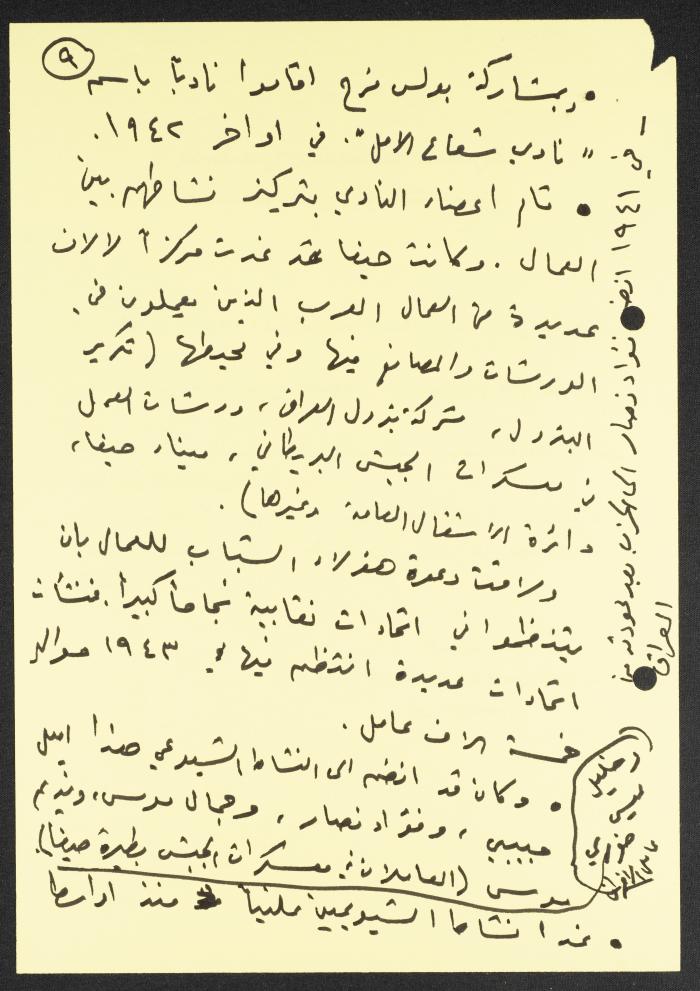 ٩
• وبمشاركة بولس فرح اقاموا نادياً باسم
"نادي شعاع الامل". في اواخر ١٩٤٢.
• قام اعضاء النادي بتركيز نشاطهم بين
العمال. وكانت حيفا قد غدت مركزاً لالاف
عديدة من العمال العرب الذين يعملون في
الورشات والمصانع فيها وفي محيطها (تكرير
البترول، شركة بترول العراق، ورشات العمل
في معسكرات الجيش البريطاني، ميناء حيفا،
دائرة الاشغال العامة وغيرها).
ولاقت دعوة هؤلاء الشباب للعمال بان
يتنظموا في اتحادات نقابية نجاحاً كبيراً. فنشأت
اتحادات عديدة انتظم فيها في ١٩٤٣ حوالي
خمسة الاف عامل.
• وكان قد انضم الى النشاط الشيوعي هذا اميل
حبيبي، وفؤاد نصار، وجمال موسى، ونديم
موسى (العاملان في معسكرات الجيش بطيرة حيفا).
• غدا نشاط الشيوعيين علنياً منذ اواسط
- في ١٩٤١ انضم فؤاد نصار الى الحزب بعد عودته من
العراق